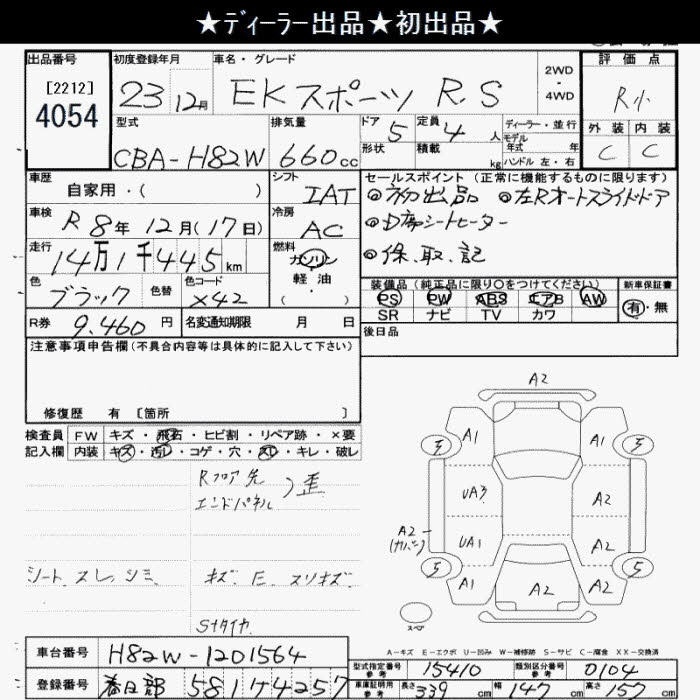 ★ディーラー出品★初出品★
出品番号
[2212]
4054
初度登録年月
23 12月
車名・グレード
EKスポーツ R.S
2WD
・
4WD
評価点
R小
外装 内装
C C
型式
CBA-H82W
排気量
660cc
ドア
5
形状
定員
4人
積載
kg
ディーラー・並行
モデル
年式 年
ハンドル 左・右
車歴
自家用・( )
シフト
IAT
セールスポイント (正常に機能するものに限ります)
◎初出品 ◎左Rオートスライドドア
◎D席シートヒーター
◎保.取.記
車検
R8年12月(17日)
冷房
AC
走行
14万1千445km
燃料
ガソリン
軽油
・( )
色
ブラック
色替
色コード
X42
装備品 (純正品に限り○をつけてください)
PS PW ABS エアB AW
SR ナビ TV カワ
新車保証書
有・無
R券
9,460円
名変通知期限 月 日
後日品
注意事項申告欄(不具合内容等は具体的に記入して下さい)
修復歴 有 [箇所 ]
検査員
記入欄
FW キズ・飛石・ヒビ割・リペア跡・×要
内装 キズ・汚レ・コゲ・穴・スレ・キレ・破レ
Rフロア先
エンドパネル
)歪
シート スレ、シミ
キズ E スリキズ
Sタイヤ
A2
5 A1 A1 5
UA3 A2
A2
(カバー)
UA1 A2
5 A1 A2 A2 5
A2
スペア
A-キズ E-エクボ U-凹み W-補修跡 S-サビ C-腐食 XX-交換済
車台番号
H82W-1201564
登録番号
春日部 581 サ 4257
型式指定番号
参考
15410
類別区分番号
参考
0104
車庫証明用
参考
長さ
339cm
幅
147cm
高さ
157cm